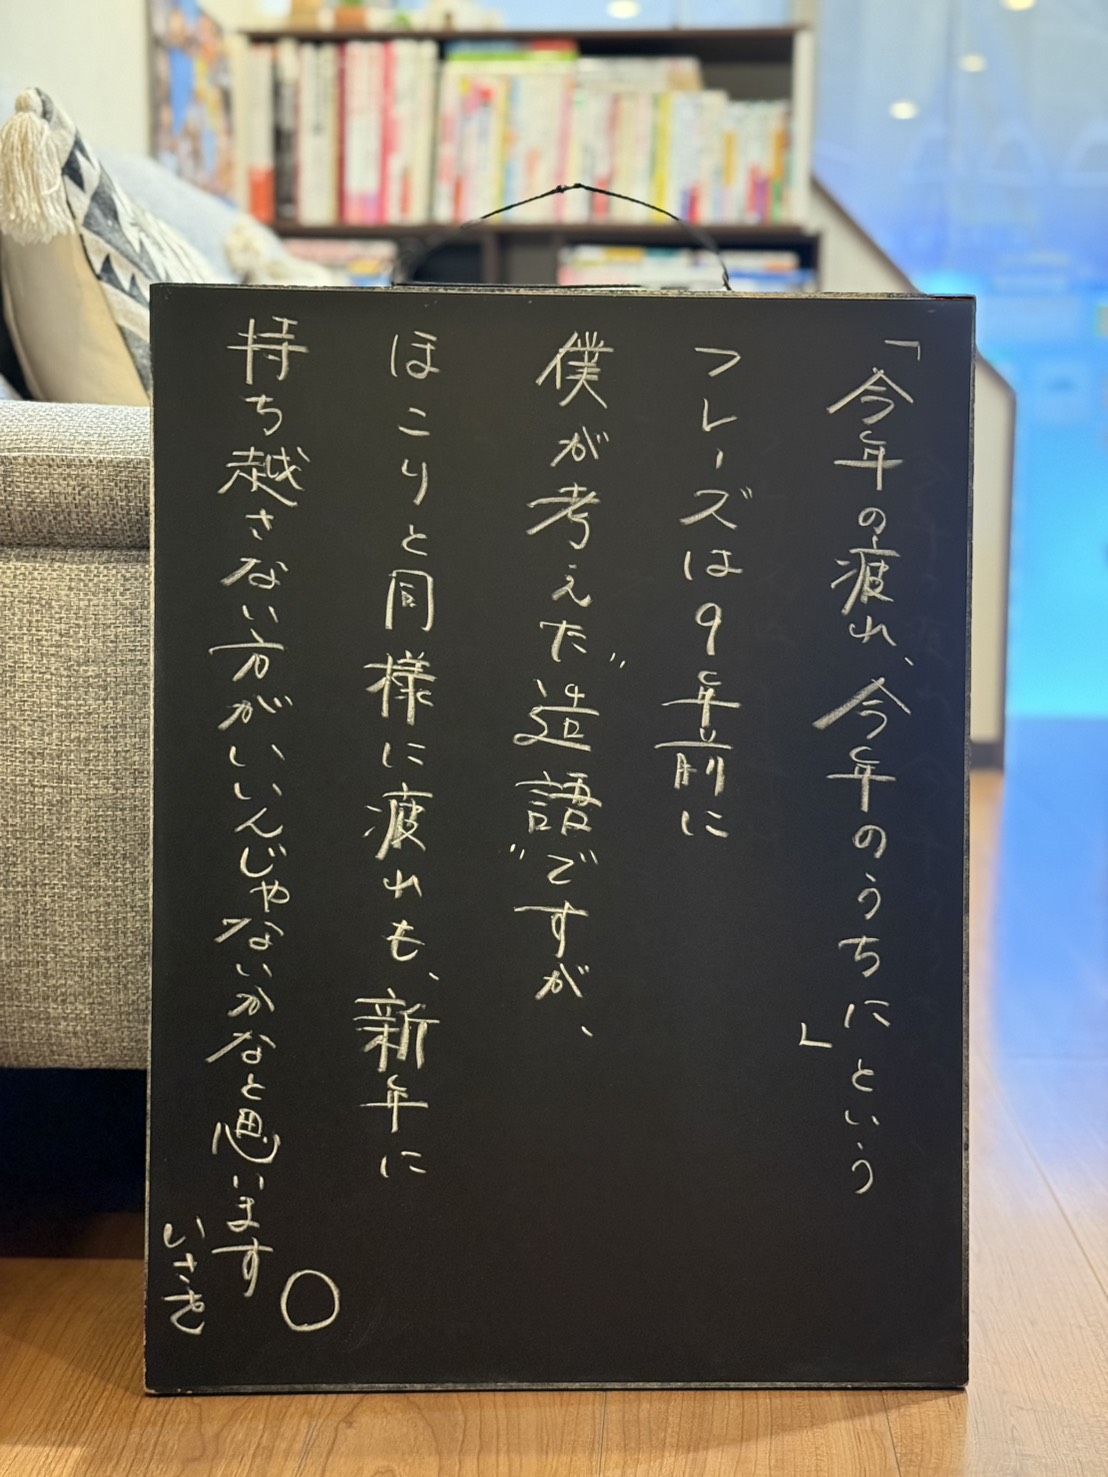 「今年の疲れ、今年のうちに」という
フレーズは9年前に
僕が考えた"造語"ですが、
ほこりと同様に疲れも、新年に
持ち越さない方がいいんじゃないかなと思います。
いさき